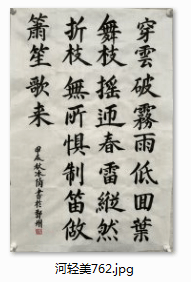 穿雲破霧雨低回葉
舞枝摇迎春雷縱然
折枝無所惧制笛做
簫笙歌来
甲辰秋冰
河轻美762.jpg